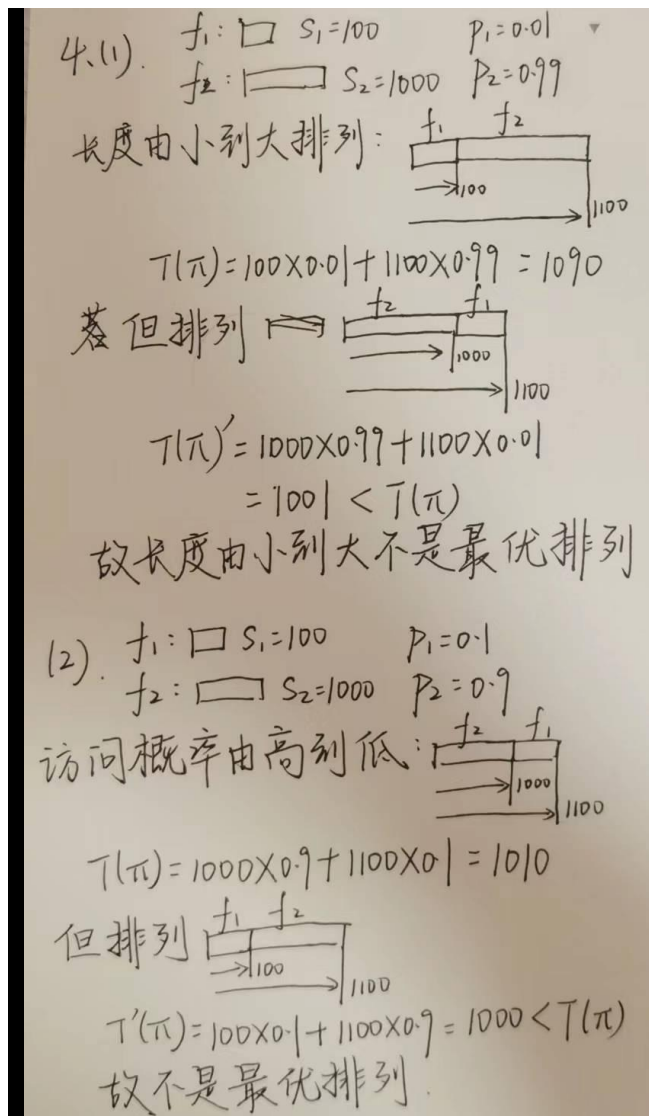 4.(1). f₁: S₁=100 P₁=0.01
f₂: S₂=1000 P₂=0.99
长度由小到大排列: f₁ f₂
100
1100
T(π)=100×0.01+1100×0.99=1090
但排列 f₂ f₁
1000
1100
T(π)′=1000×0.99+1100×0.01
=1001<T(π)
故长度由小到大不是最优排列
(2). f₁: S₁=100 P₁=0.1
f₂: S₂=1000 P₂=0.9
访问概率由高到低: f₂ f₁
1000
1100
T(π)=1000×0.9+1100×0.1=1010
但排列 f₁ f₂
100
1100
T′(π)=100×0.1+1100×0.9=1000<T(π)
故不是最优排列.